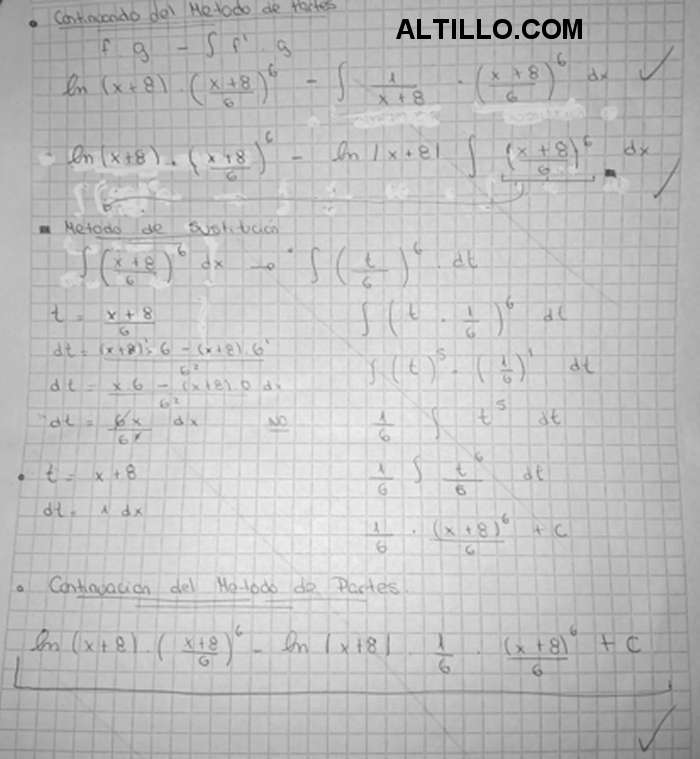 • Continuando del Metodo de Partes
ALTILLO.COM
f . g - ∫ f' . g
ln (x+8) . (x+8/6)^6 - ∫ 1/x+8 . (x+8/6)^6 dx ✓
ln (x+8) . (x+8/6)^6 - ln |x+8| ∫ (x+8)^6/6 dx ✓
▪ Metodo de Sustitución
∫ (x+8/6)^6 dx → ∫ (t/6)^6 . dt
t = x+8/6
∫ (t . 1/6)^6 dt
dt = (x+8)'. 6 - (x+8) . 6'/6^2
∫ (t)^5 . (1/6)^1 dt
dt = x 6 - (x+8) 0 dx/6^2
dt = 6x/6 dx NO
1/6 ∫ t^5 dt
• t = x+8
1/6 ∫ t^6/6 dt
dt = 1 dx
1/6 . (x+8)^6/6 + C
• Continuacion del Metodo de Partes.
ln (x+8) . (x+8/6)^6 - ln |x+8| . 1/6 . (x+8)^6/6 + C
✓